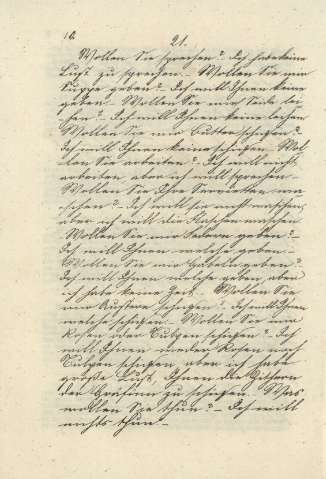 10.
21.
Wollen Sie sprechen? – Ich habe keine
Lust zu sprechen – Wollen Sie mir
Suppe geben? – Ich will Ihnen keine
geben – Wollen Sie mir Seide lei-
hen? – Ich will Ihnen keine leihen
Wollen Sie mir Butter schicken? –
Ich will Ihnen keine schicken. Wol
len Sie arbeiten? – Ich will nicht
arbeiten aber ich will sprechen –
Wollen Sie Ihre Servietten wa-
schen? – Ich will sie nicht waschen
aber ich will die Flaschen waschen
Wollen Sie mir Federn geben? –
Ich will Ihnen welche geben –
Wollen Sie mir Gabeln geben? –
Ich will Ihnen welche geben, aber
ich habe keine Zeit – Wollen Sie
mir Austern schicken? – Ich will Ihnen
welche schicken – Wollen Sie mir
Rosen oder Tulpen schicken? – Ich
will Ihnen weder Rosen noch
Tulpen schicken aber ich habe
große Lust, Ihnen die
der Gräfinn zu schicken. – Was
wollen Sie thun? – Ich will
nichts thun –